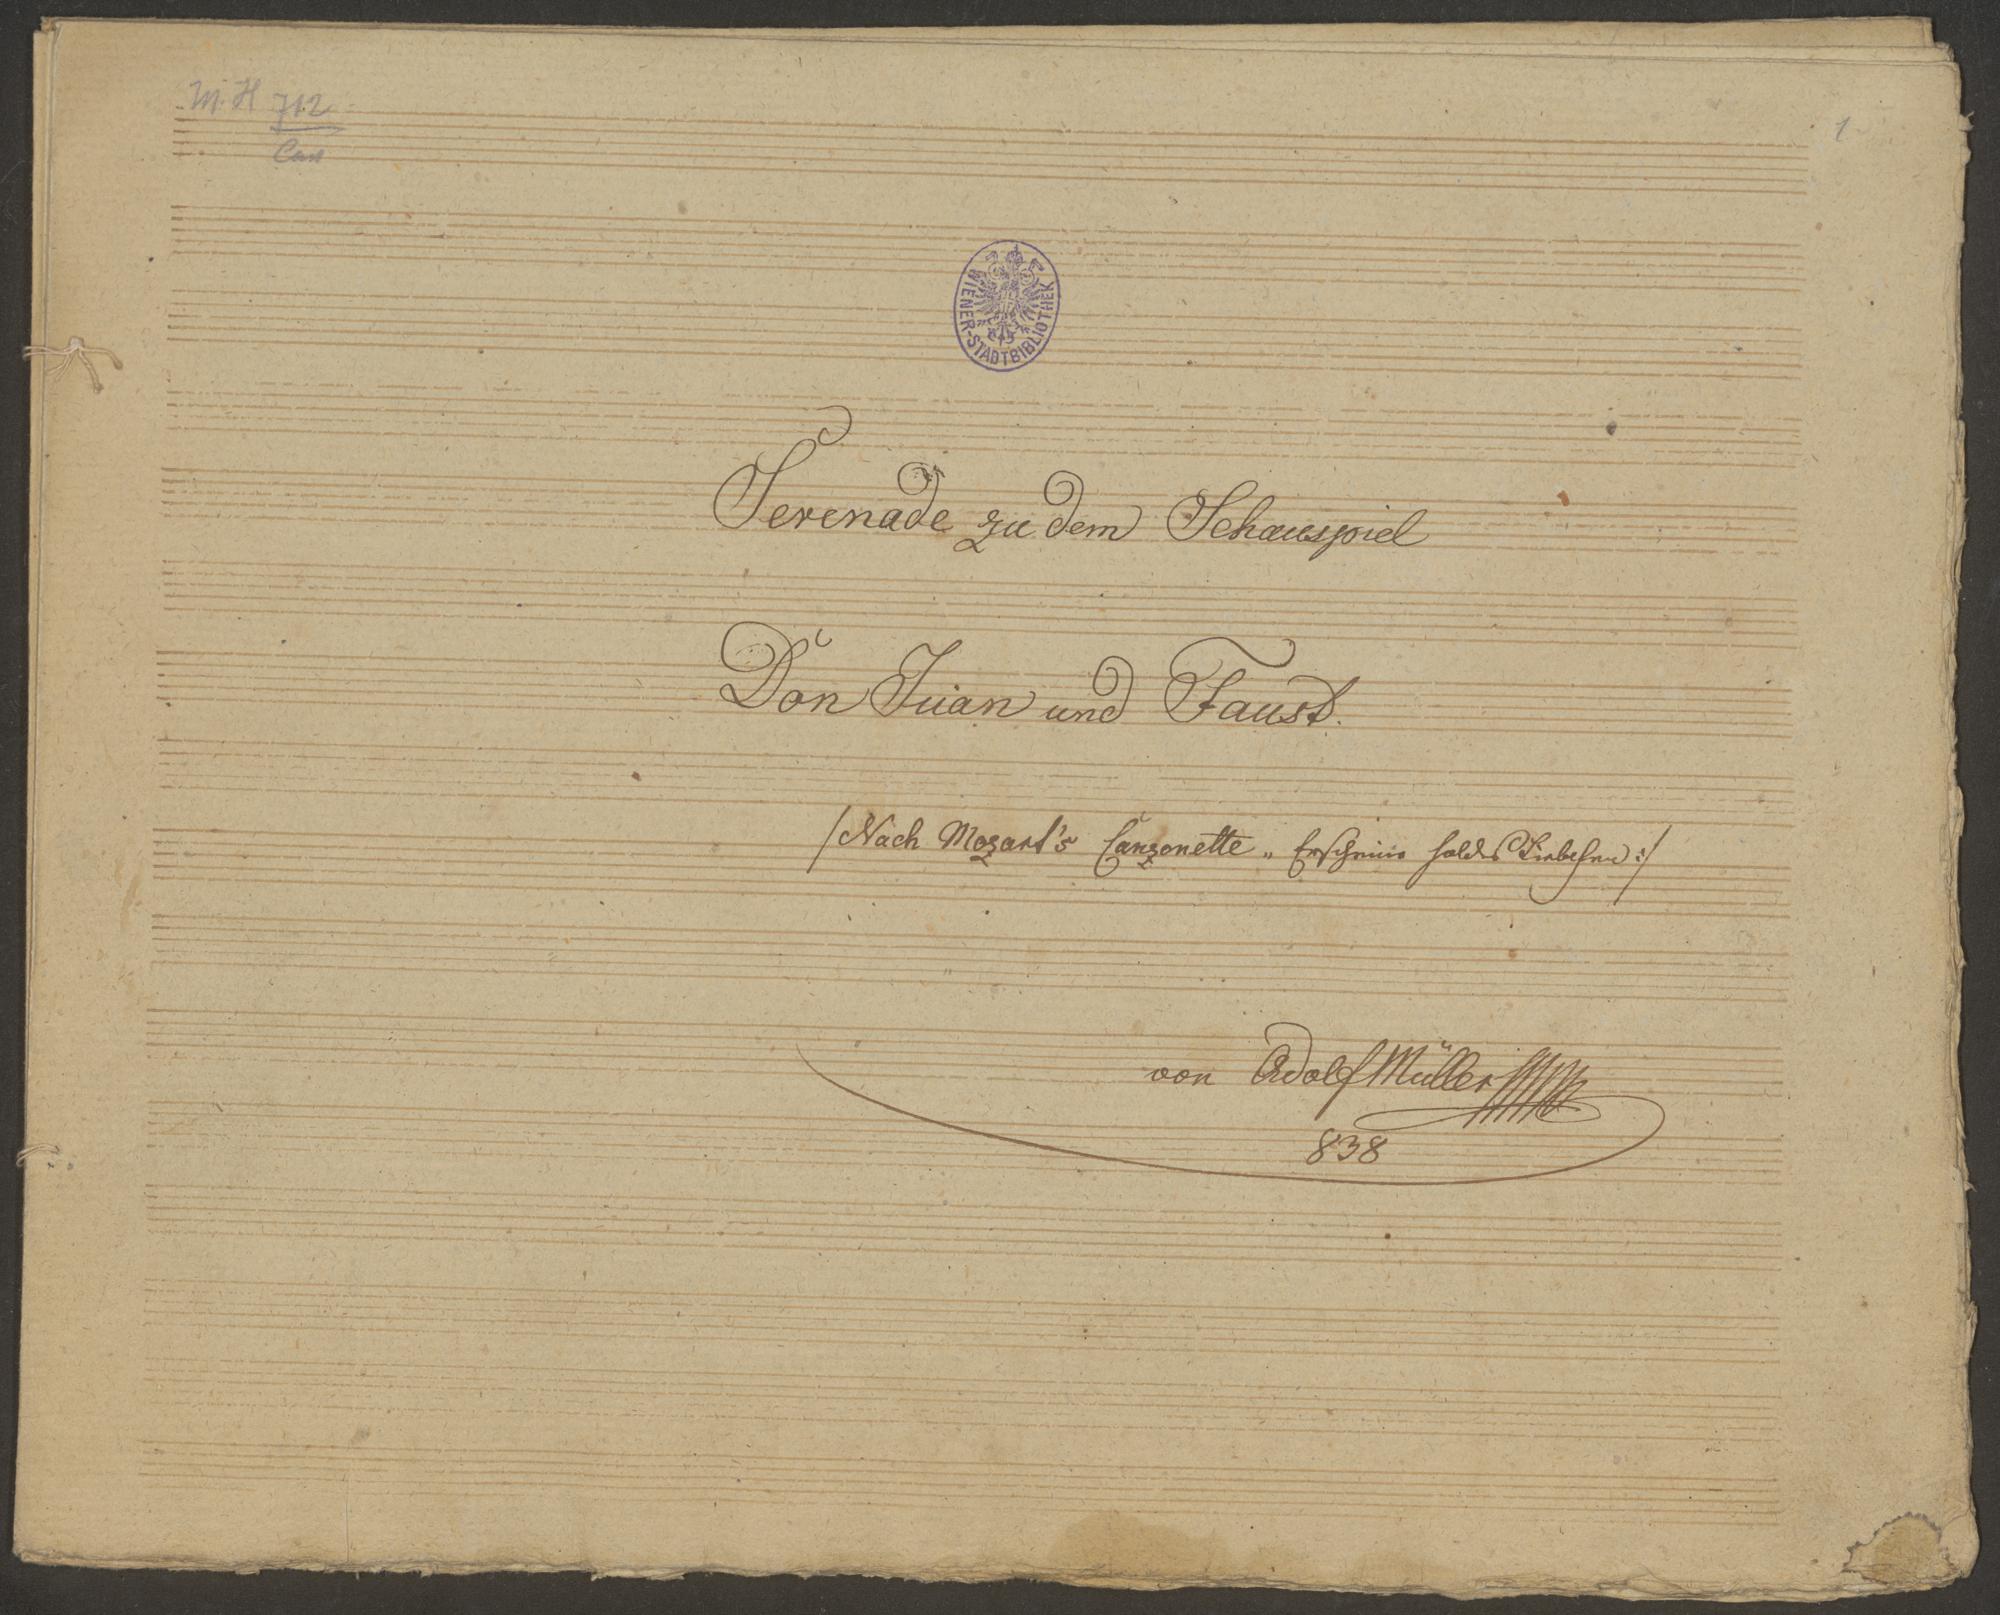 M. H 712
1
WIENER-STADTBIBLIOTHEK
Serenade zu dem Schauspiel
Don Juan und Faust.
/Nach Mozart's Canzonette „ Erscheine holdes Liebchen :/
von Adolf Müller
838